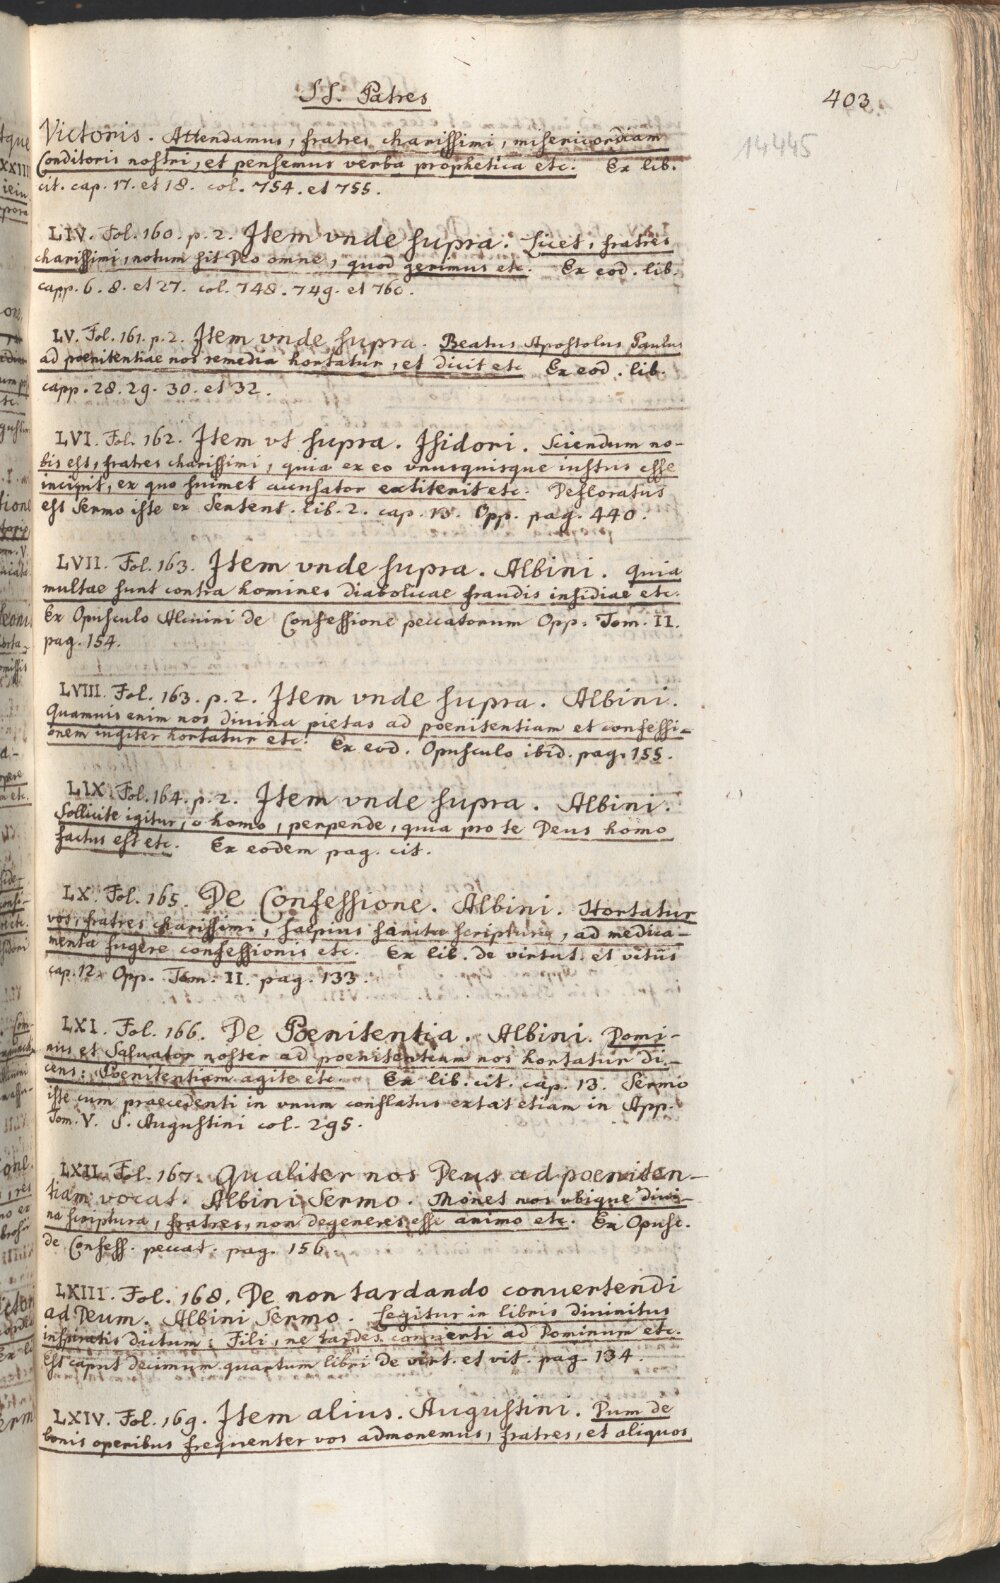 SS. Patres
403
14445
Victoris. Attendamus, fratres charissimi, misericordiam
Conditoris nostri, et pensemus verba prophetica etc. Ex lib.
cit. cap. 17. et 18. col. 754. et 755.
LIV. Fol. 160. p. 2. Item vnde supra. Licet, fratres
charissimi, notum sit Deo omne, quod gerimus etc. Ex eod. lib.
capp. 6. 8. et 27. col. 748. 749. et 760.
LV. Fol. 161. p. 2. Item vnde supra. Beatus Apostolus Paulus
ad poenitentiae nos remedia hortatur, et dicit etc. Ex eod. lib.
capp. 28. 29. 30. et 32.
LVI. Fol. 162. Item vt supra. Isidori. Sciendum no-
bis est, fratres charissimi, quia ex eo vnusquisque iustus esse
incipit, ex quo suimet accusator extiterit etc. Defloratus
est Sermo iste ex Sentent. lib. 2. cap. 13. Opp. pag. 440.
LVII. Fol. 163. Item vnde supra. Albini. Quia
multae sunt contra homines diabolicae fraudis insidiae etc.
Ex Opusculo Alcuini de Confessione peccatorum Opp. Tom. II.
pag. 154.
LVIII. Fol. 163. p. 2. Item vnde supra. Albini.
Quamuis enim nos diuina pietas ad poenitentiam et confessi-
onem iugiter hortatur etc. Ex eod. Opusculo ibid. pag. 155.
LIX. Fol. 164. p. 2. Item vnde supra. Albini.
Sollicite igitur, o homo, perpende, quia pro te Deus homo
factus est etc. Ex eodem pag. cit.
LX. Fol. 165. De Confessione. Albini. Hortatur
vos, fratres charissimi, saepius sancta scriptura, ad medica-
menta fugere confessionis etc. Ex lib. de virtut. et vitiis
cap. 12. Opp. Tom. II. pag. 133.
LXI. Fol. 166. De Poenitentia. Albini. Domi-
nus et Saluator noster ad poenitentiam nos hortatur di-
cens: Poenitentiam agite etc. Ex lib. cit. cap. 13. Sermo
iste cum praecedenti in vnum conflatus extat etiam in App.
Tom. V. S. Augustini col. 295.
LXII. Fol. 167. Qualiter nos Deus ad poeniten-
tiam vocat. Albini Sermo. Monet nos vbique diui-
na scriptura, fratres, non degeneres esse animo etc. Ex Opusc.
de Confess. peccat. pag. 156.
LXIII. Fol. 168. De non tardando conuertendi
ad Deum. Albini Sermo. Legitur in libris diuinitus
inspiratis dictum: Fili, ne tardes conuerti ad Dominum etc.
Est caput decimum quartum libri de virt. et vit. pag. 134.
LXIV. Fol. 169. Item alius. Augustini. Dum de
bonis operibus frequenter vos admonemus, fratres, et aliquos